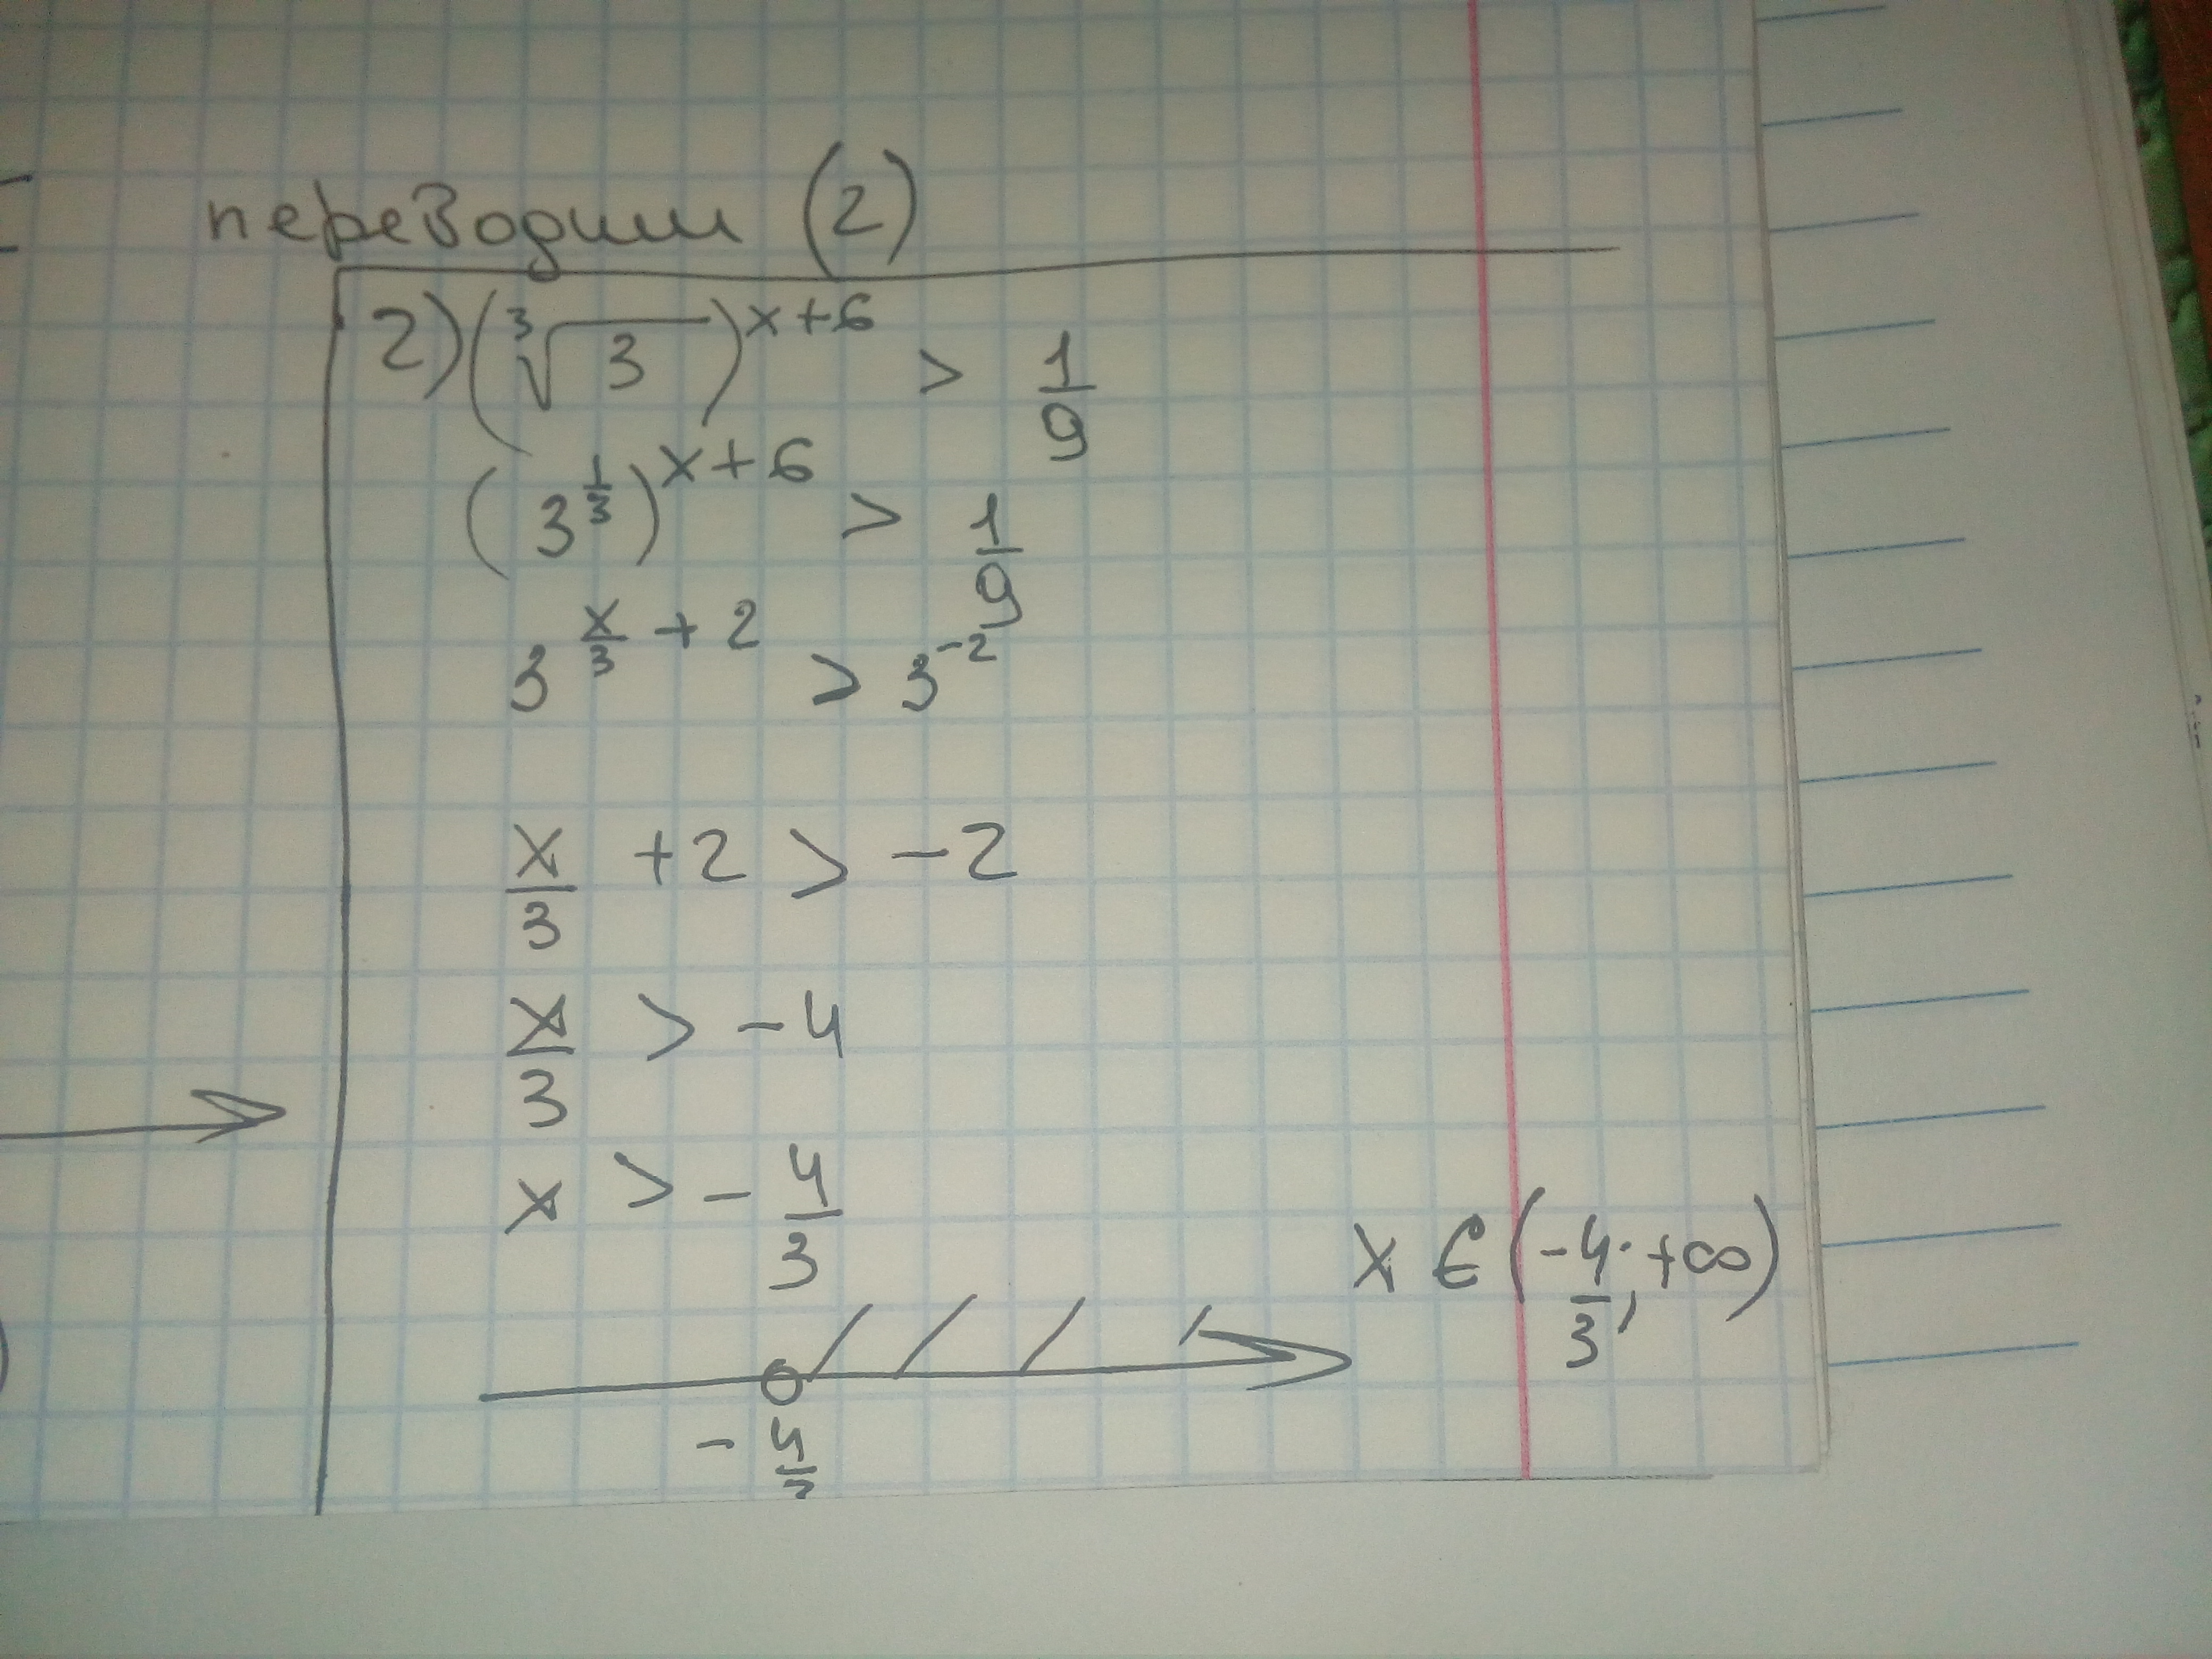 переводим (2)
2) (∛3)^(x+6) > 1/9
(3^(1/3))^(x+6) > 1/9
3^(x/3 + 2) > 3^(-2)
x/3 + 2 > -2
x/3 > -4
x > -4/3
x ∈ (-4/3; +∞)
-4/3